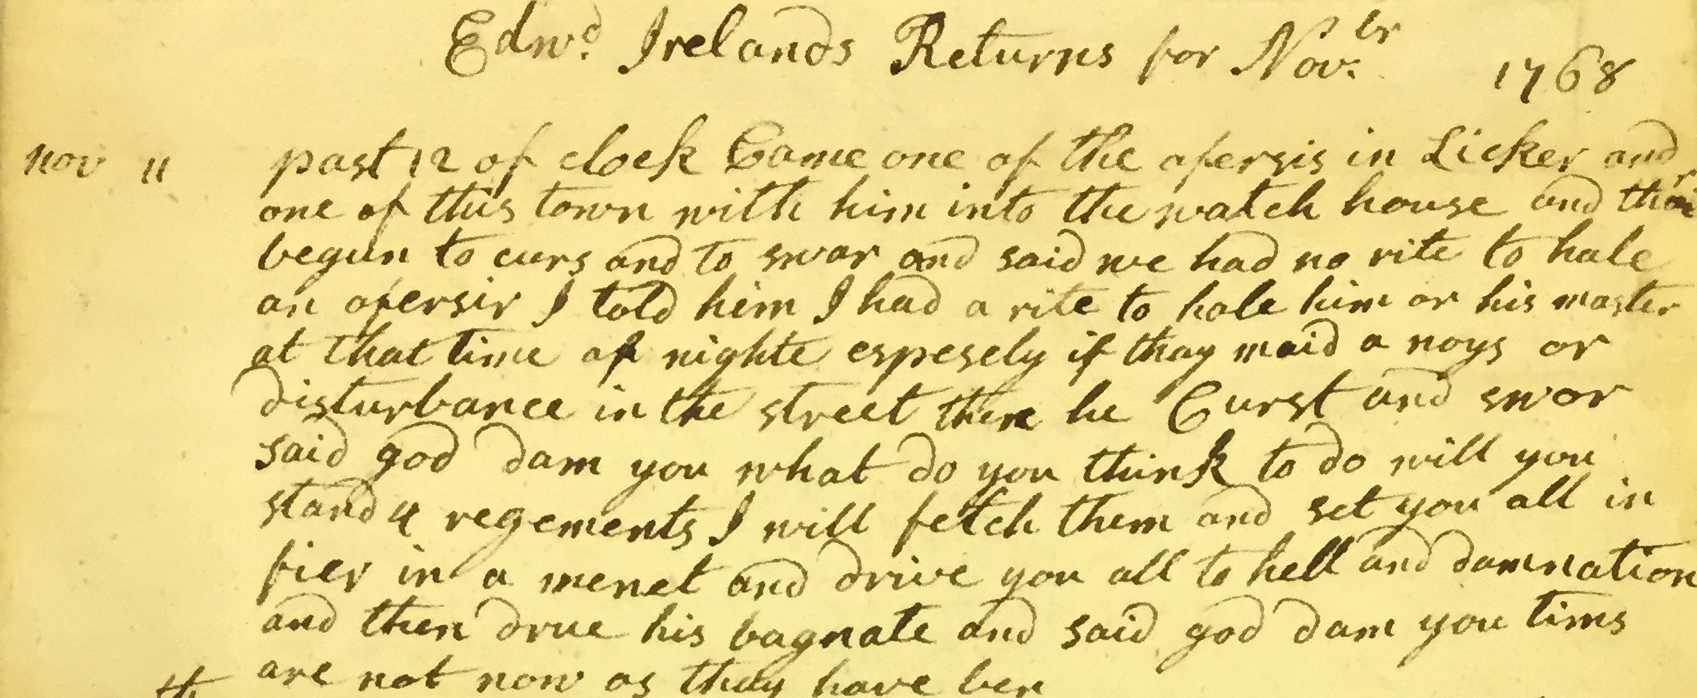 Edwd. Irelands Returns for Novbr. 1768
nov 11 past 12 of clock Came one of the afersis in Licker and
one of this town with him into the watch house and thair
begun to curs and to swar and said we had no rite to hale
an afersir I told him I had a rite to hale him or his master
at that time of nighte espesely if thay maid a noys or
disturbance in the street then he Curst and swor
said god dam you what do you think to do will you
stand 4 regements I will fetch them and set you all in
fier in a menet and drive you all to hell and damnation
and then drue his bagnate and said god dam you tims
are not now as thay have ben
th